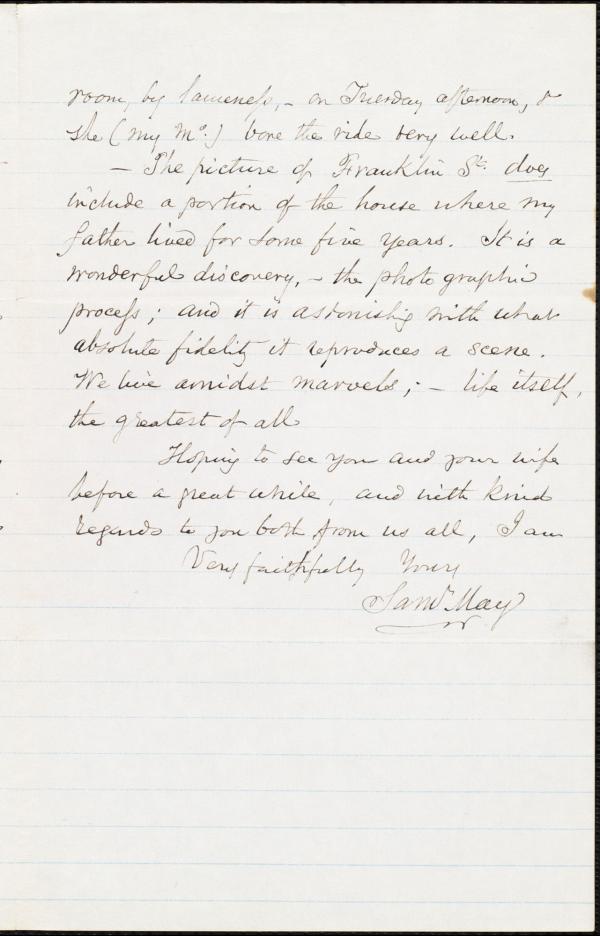 room, by lameness, - on Tuesday afternoon, &
she (my Mo:) bore the ride very well.
- The picture of Franklin St. does
include a portion of the house where my
father lived for some five years. It is a
wonderful discovery, - the photographic
process; and it is astonishing with what
absolute fidelity it reproduces a scene.
We live amidst marvels; - life itself,
the greatest of all
Hoping to see you and your wife
before a great while, and with kind
regards to you both from us all, I am
Very faithfully Yours
Saml. May